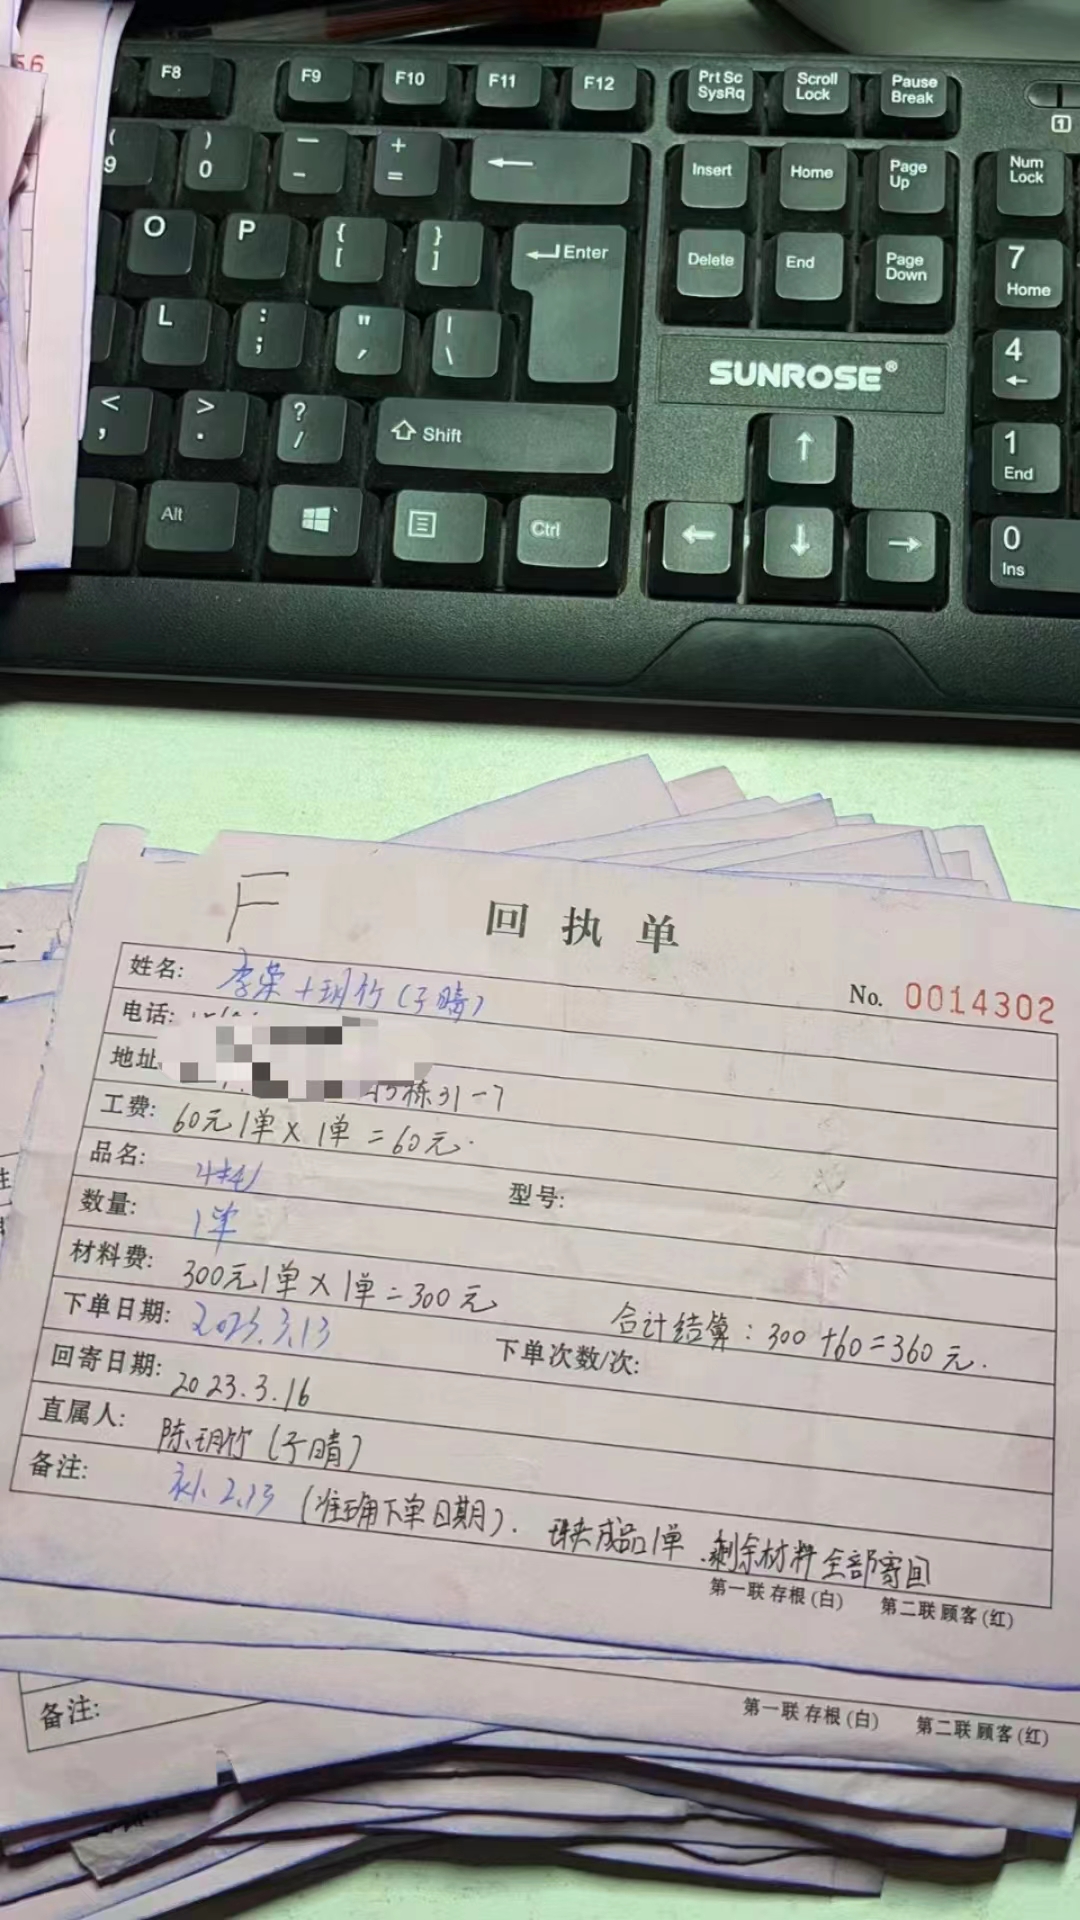 56
F8 F9 F10 F11 F12 Prt Sc SysRq Scroll Lock Pause Break
1
( 9 ) 0 — - + = Insert Home Page Up Num Lock
O P { [ } ] Enter Delete End Page Down 7 Home
L : ; " ' | \ SUNROSE® 4
< , > . ? / Shift 1 End
Alt Ctrl 0 Ins
F
回执单
姓名: 李荣+玥竹(子晴)
No. 0014302
电话:
地址 栋31-7
工费: 60元1单×1单=60元.
品名:
型号:
数量: 1单
材料费: 300元1单×1单=300元
合计结算: 300+60=360元.
下单日期: 2023.3.13
下单次数/次:
回寄日期: 2023.3.16
直属人: 陈玥竹(子晴)
备注: 补2.13(准确下单日期). 缺成品1单.剩余材料全部寄回
第一联 存根(白) 第二联 顾客(红)
备注:
第一联 存根(白) 第二联 顾客(红)